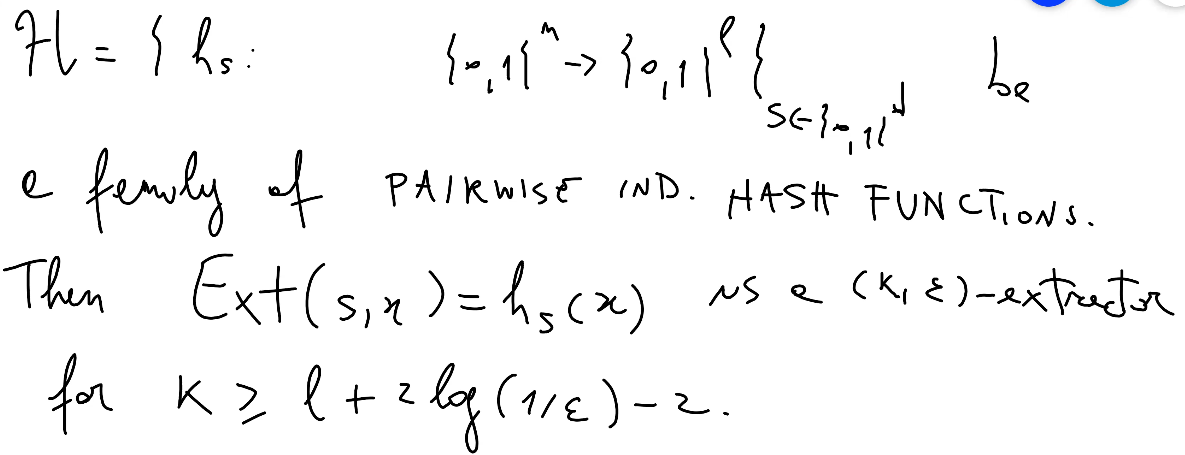 H = { h_s : {0,1}^n → {0,1}^ℓ }_{s∈{0,1}^d} be
a family of PAIRWISE IND. HASH FUNCTIONS.
Then Ext(s,x) = h_s(x) is a (k,ε)-extractor
for k ≥ ℓ + 2 log(1/ε) - 2.